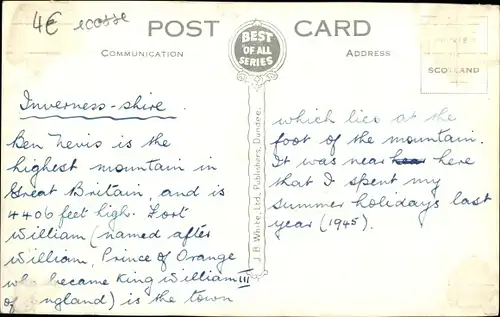 4€ ecosse
POST CARD
COMMUNICATION
BEST
OF ALL
SERIES
ADDRESS
SCOTLAND
Inverness-shire.
Ben Nevis is the
highest mountain in
Great Britain, and is
4406 feet high. Fort
William (named after
William, Prince of Orange
who became King William III
of England) is the town
J.B. White, Ltd., Publishers, Dundee.
which lies at the
foot of the mountain.
It was near here
that I spent my
summer holidays last
year (1945).